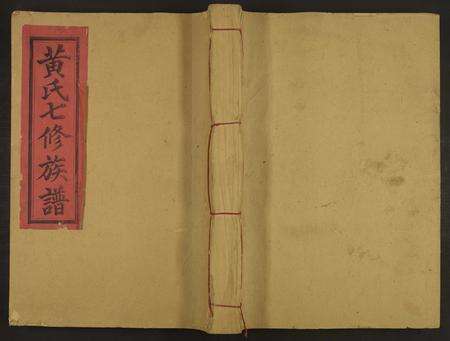 黄氏七修族譜